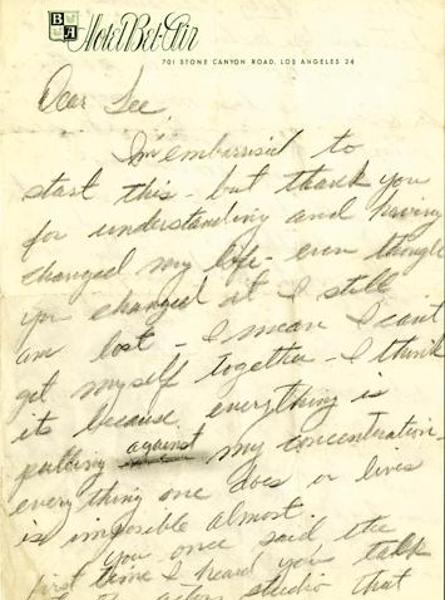 B
A
Hotel Bel-Air
701 STONE CANYON ROAD, LOS ANGELES 24
Dear Lee,
I'm embarrisid to
start this - but thank you
for understanding and having
changed my life - even though
you changed it I still
am lost - I mean I can't
get myself together - I think
its because everything is
pulling against my concentration -
everything one does or lives
is imposible almost.
you once said the
first time I heard you talk
actors studio that